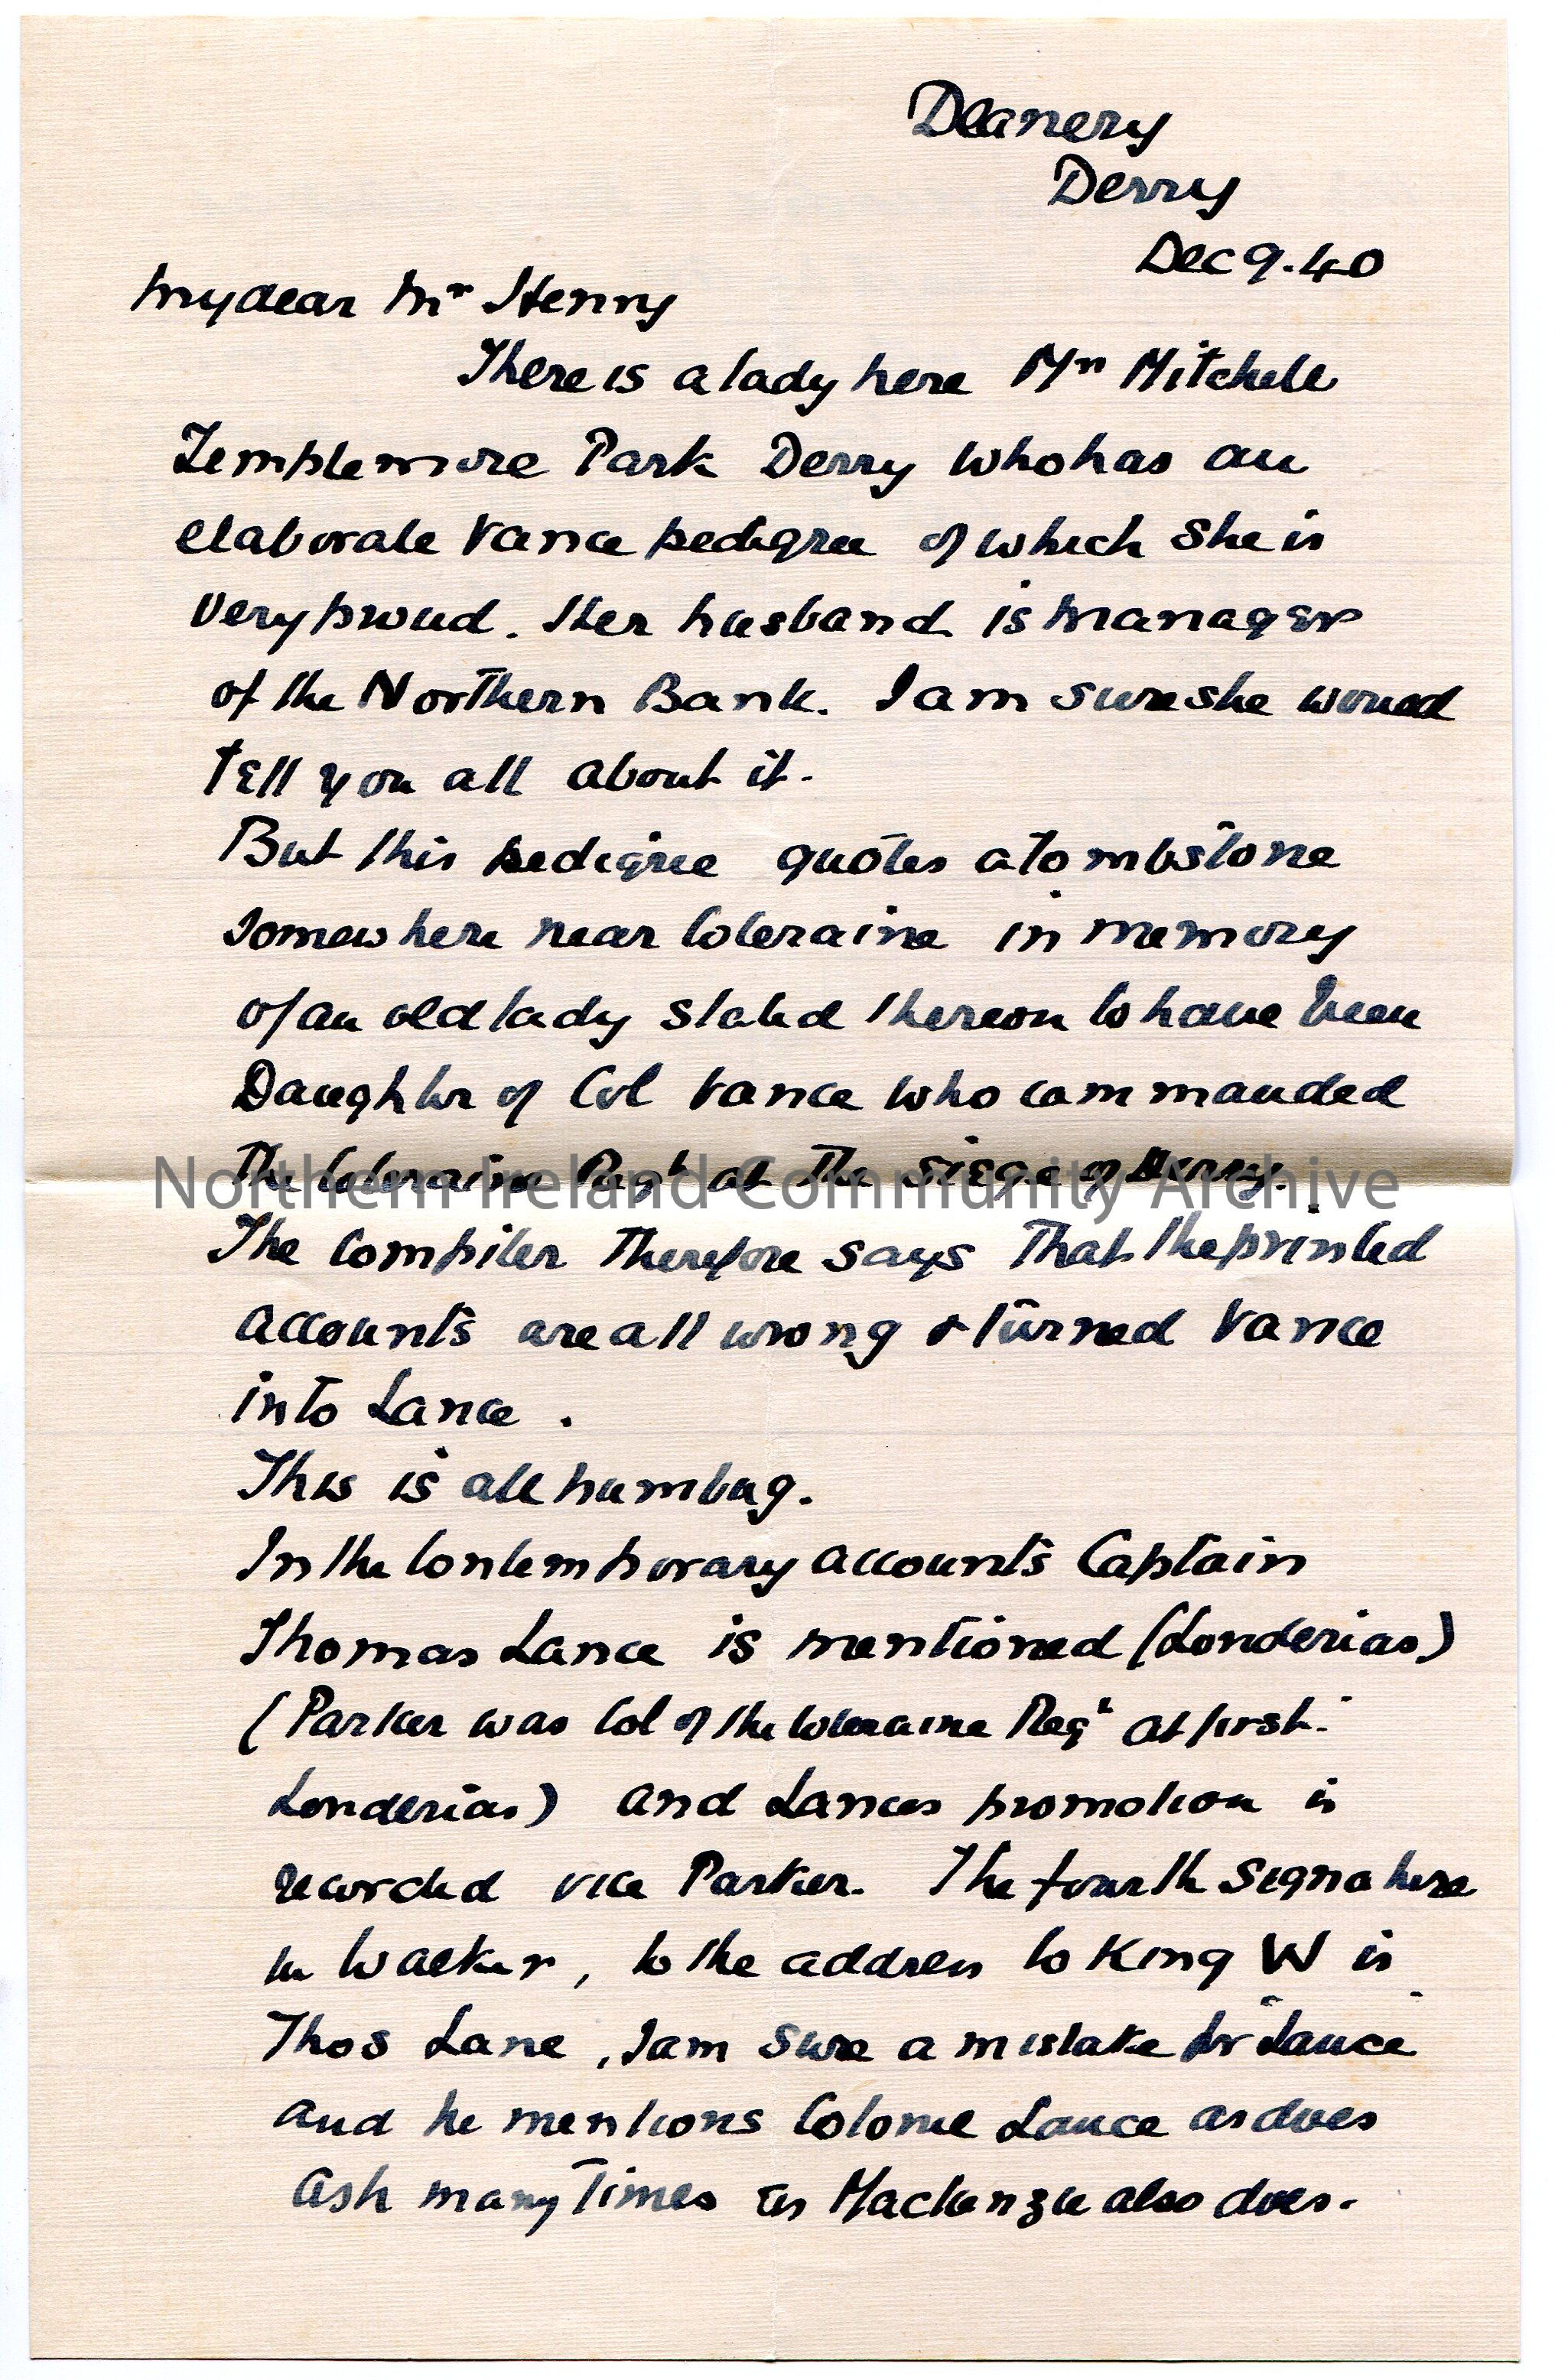 Deanery
Derry
Dec 9. 40
My dear Mr Henry
There is a lady here Mrs Mitchell
Templemore Park Derry who has an
elaborate Vance pedigree of which she is
very proud. Her husband is manager
of the Northern Bank. I am sure she would
tell you all about it.
But this pedigree quotes a tombstone
somewhere near Coleraine in memory
of an old lady stated thereon to have been
Daughter of Col Vance who commanded
the Coleraine Regt at the siege of Derry.
Northern Ireland Community Archive
The compiler therefore says that the printed
accounts are all wrong & turned Vance
into Lance.
This is all humbug.
In the contemporary accounts Captain
Thomas Lance is mentioned (Londerias)
(Parker was Col of the Coleraine Regt at first.
Londerias) and Lances promotion is
recorded vice Parker. The fourth signature
in Walker, to the address to King W is
Thos Lane, I am sure a mistake for "Lance"
and he mentions Colonel Lance as does
Ash many times as Mackenzie also does.